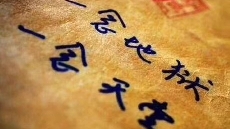 一念地獄
一念天堂